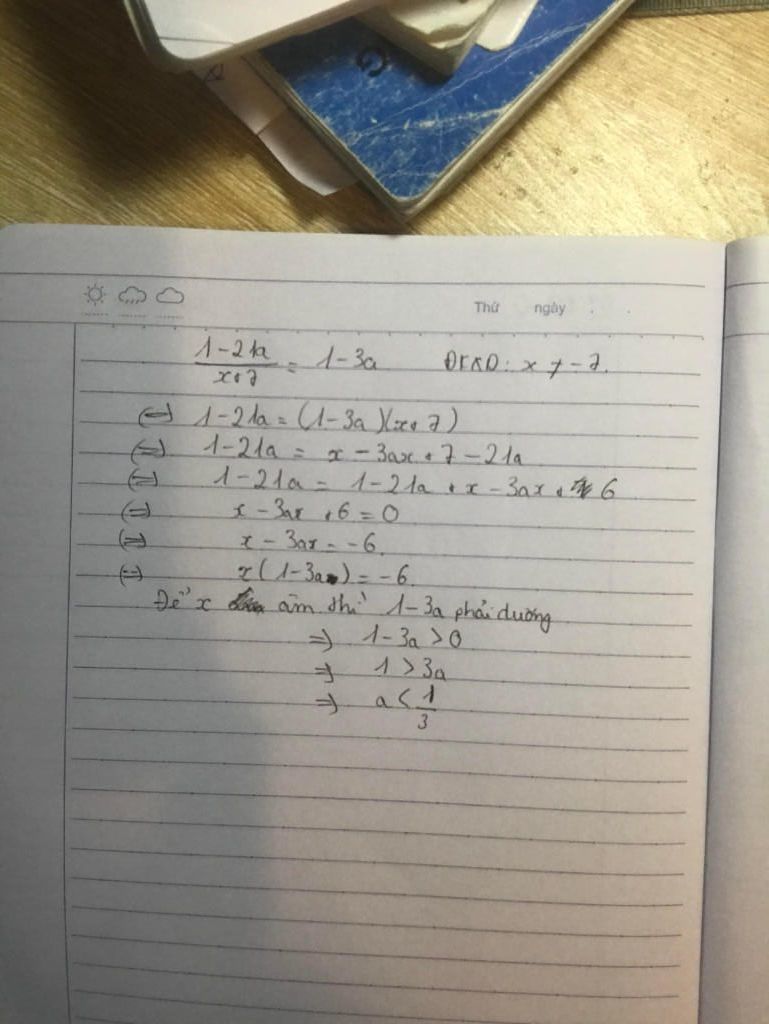 G
Thứ ngày
\frac{1-21a}{x+7} = 1-3a ĐKXĐ: x ≠ -7.
(=) 1-21a = (1-3a)(x+7)
(=) 1-21a = x - 3ax + 7 - 21a
(=) 1-21a = 1-21a + x - 3ax + 6
(=) x - 3ax + 6 = 0
(=) x - 3ax = -6
(=) x(1-3a) = -6.
Để x âm thì 1-3a phải dương
=) 1-3a > 0
=) 1 > 3a
=) a < \frac{1}{3}